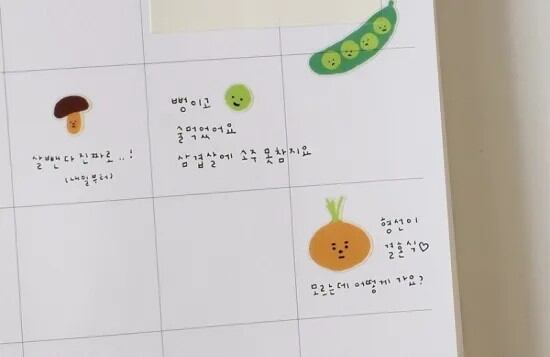 살뺀다 진짜로..!
(내일부터)
뻥이고
술먹었어요
삼겹살에 소주 못참지요
형선이
결혼식♡
모르는데 어떻게 가요?